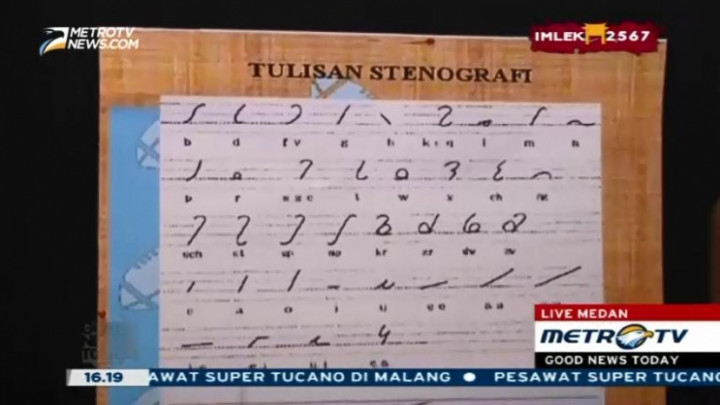 METROTV
NEWS.COM
IMLEK 2567
TULISAN STENOGRAFI
b d f v g h k q l m n
p r s z c t w x ch ng
sch st sp nd kr zr dv zv
e a o i u ee aa
ie ei ui eu
LIVE MEDAN
METRO TV
GOOD NEWS TODAY
16.19 AWAT SUPER TUCANO DI MALANG ● PESAWAT SUPER TUCAN